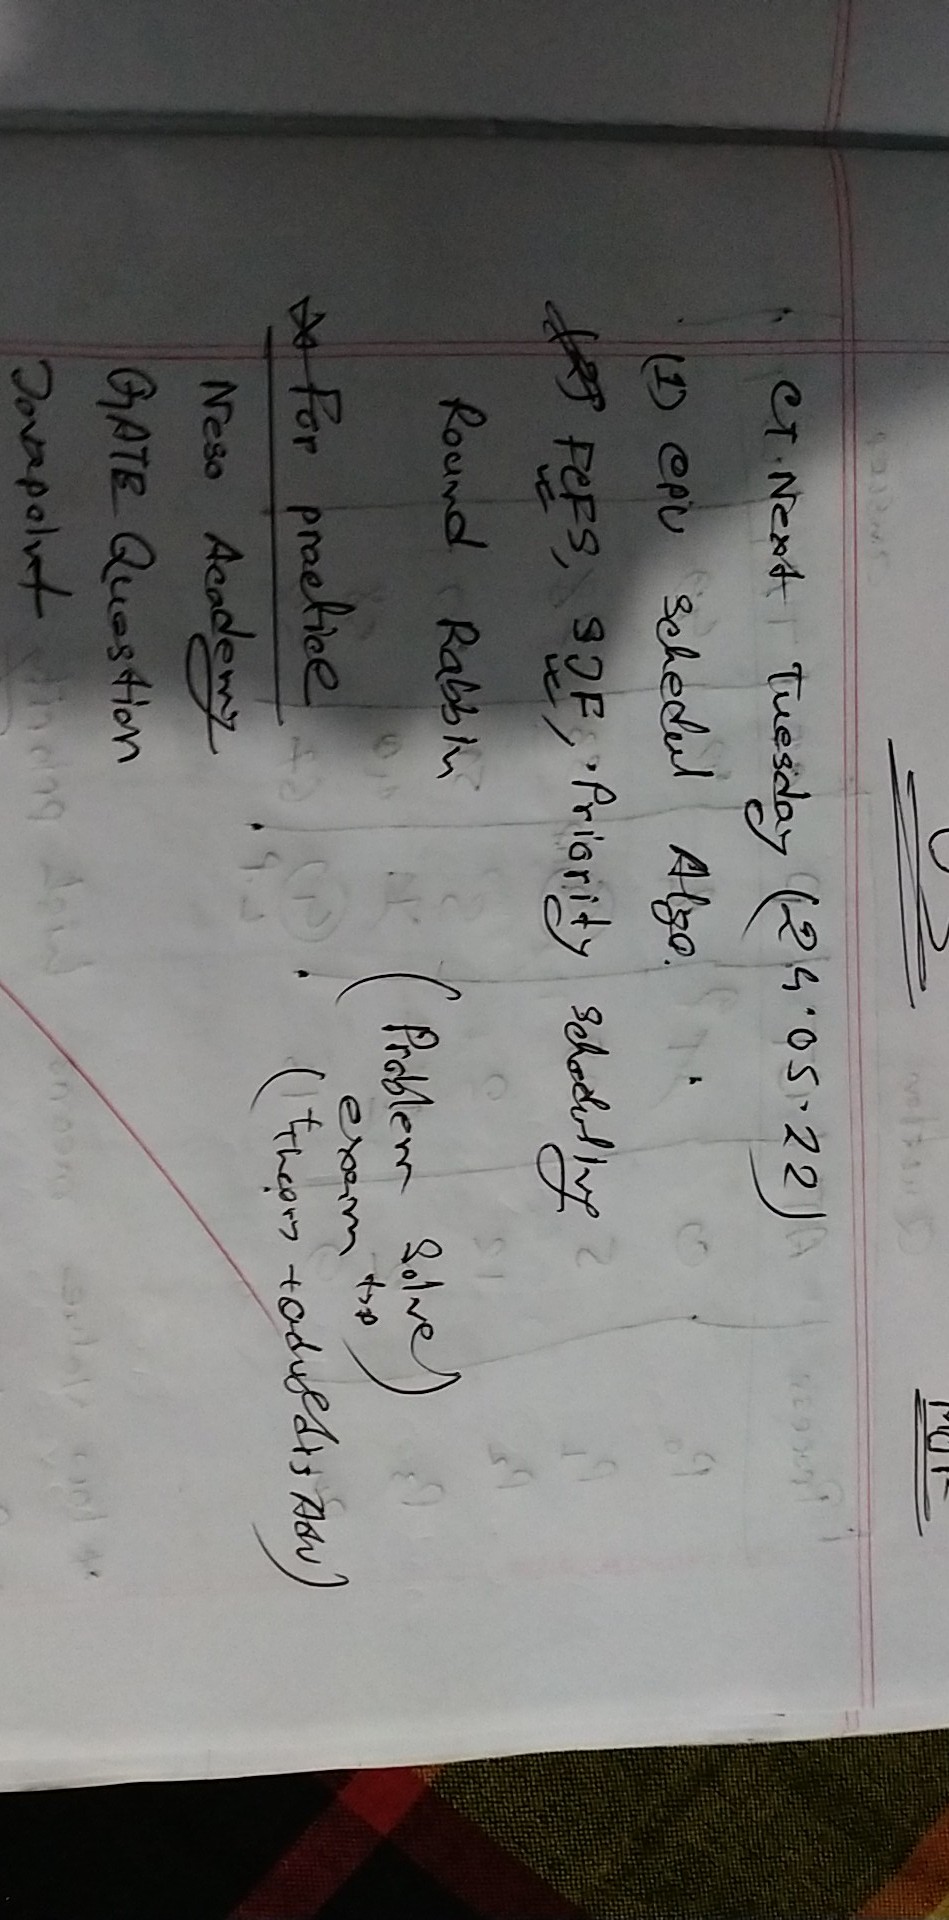 CT. Next Tuesday (24.05.22)
(1) CPU Schedul Algo.
FCFS, SJF, Priority scheduling
Round Rabbin
(Problem Solve)
exam
* For practice
Neso Academy
GATE Question
Javapoint